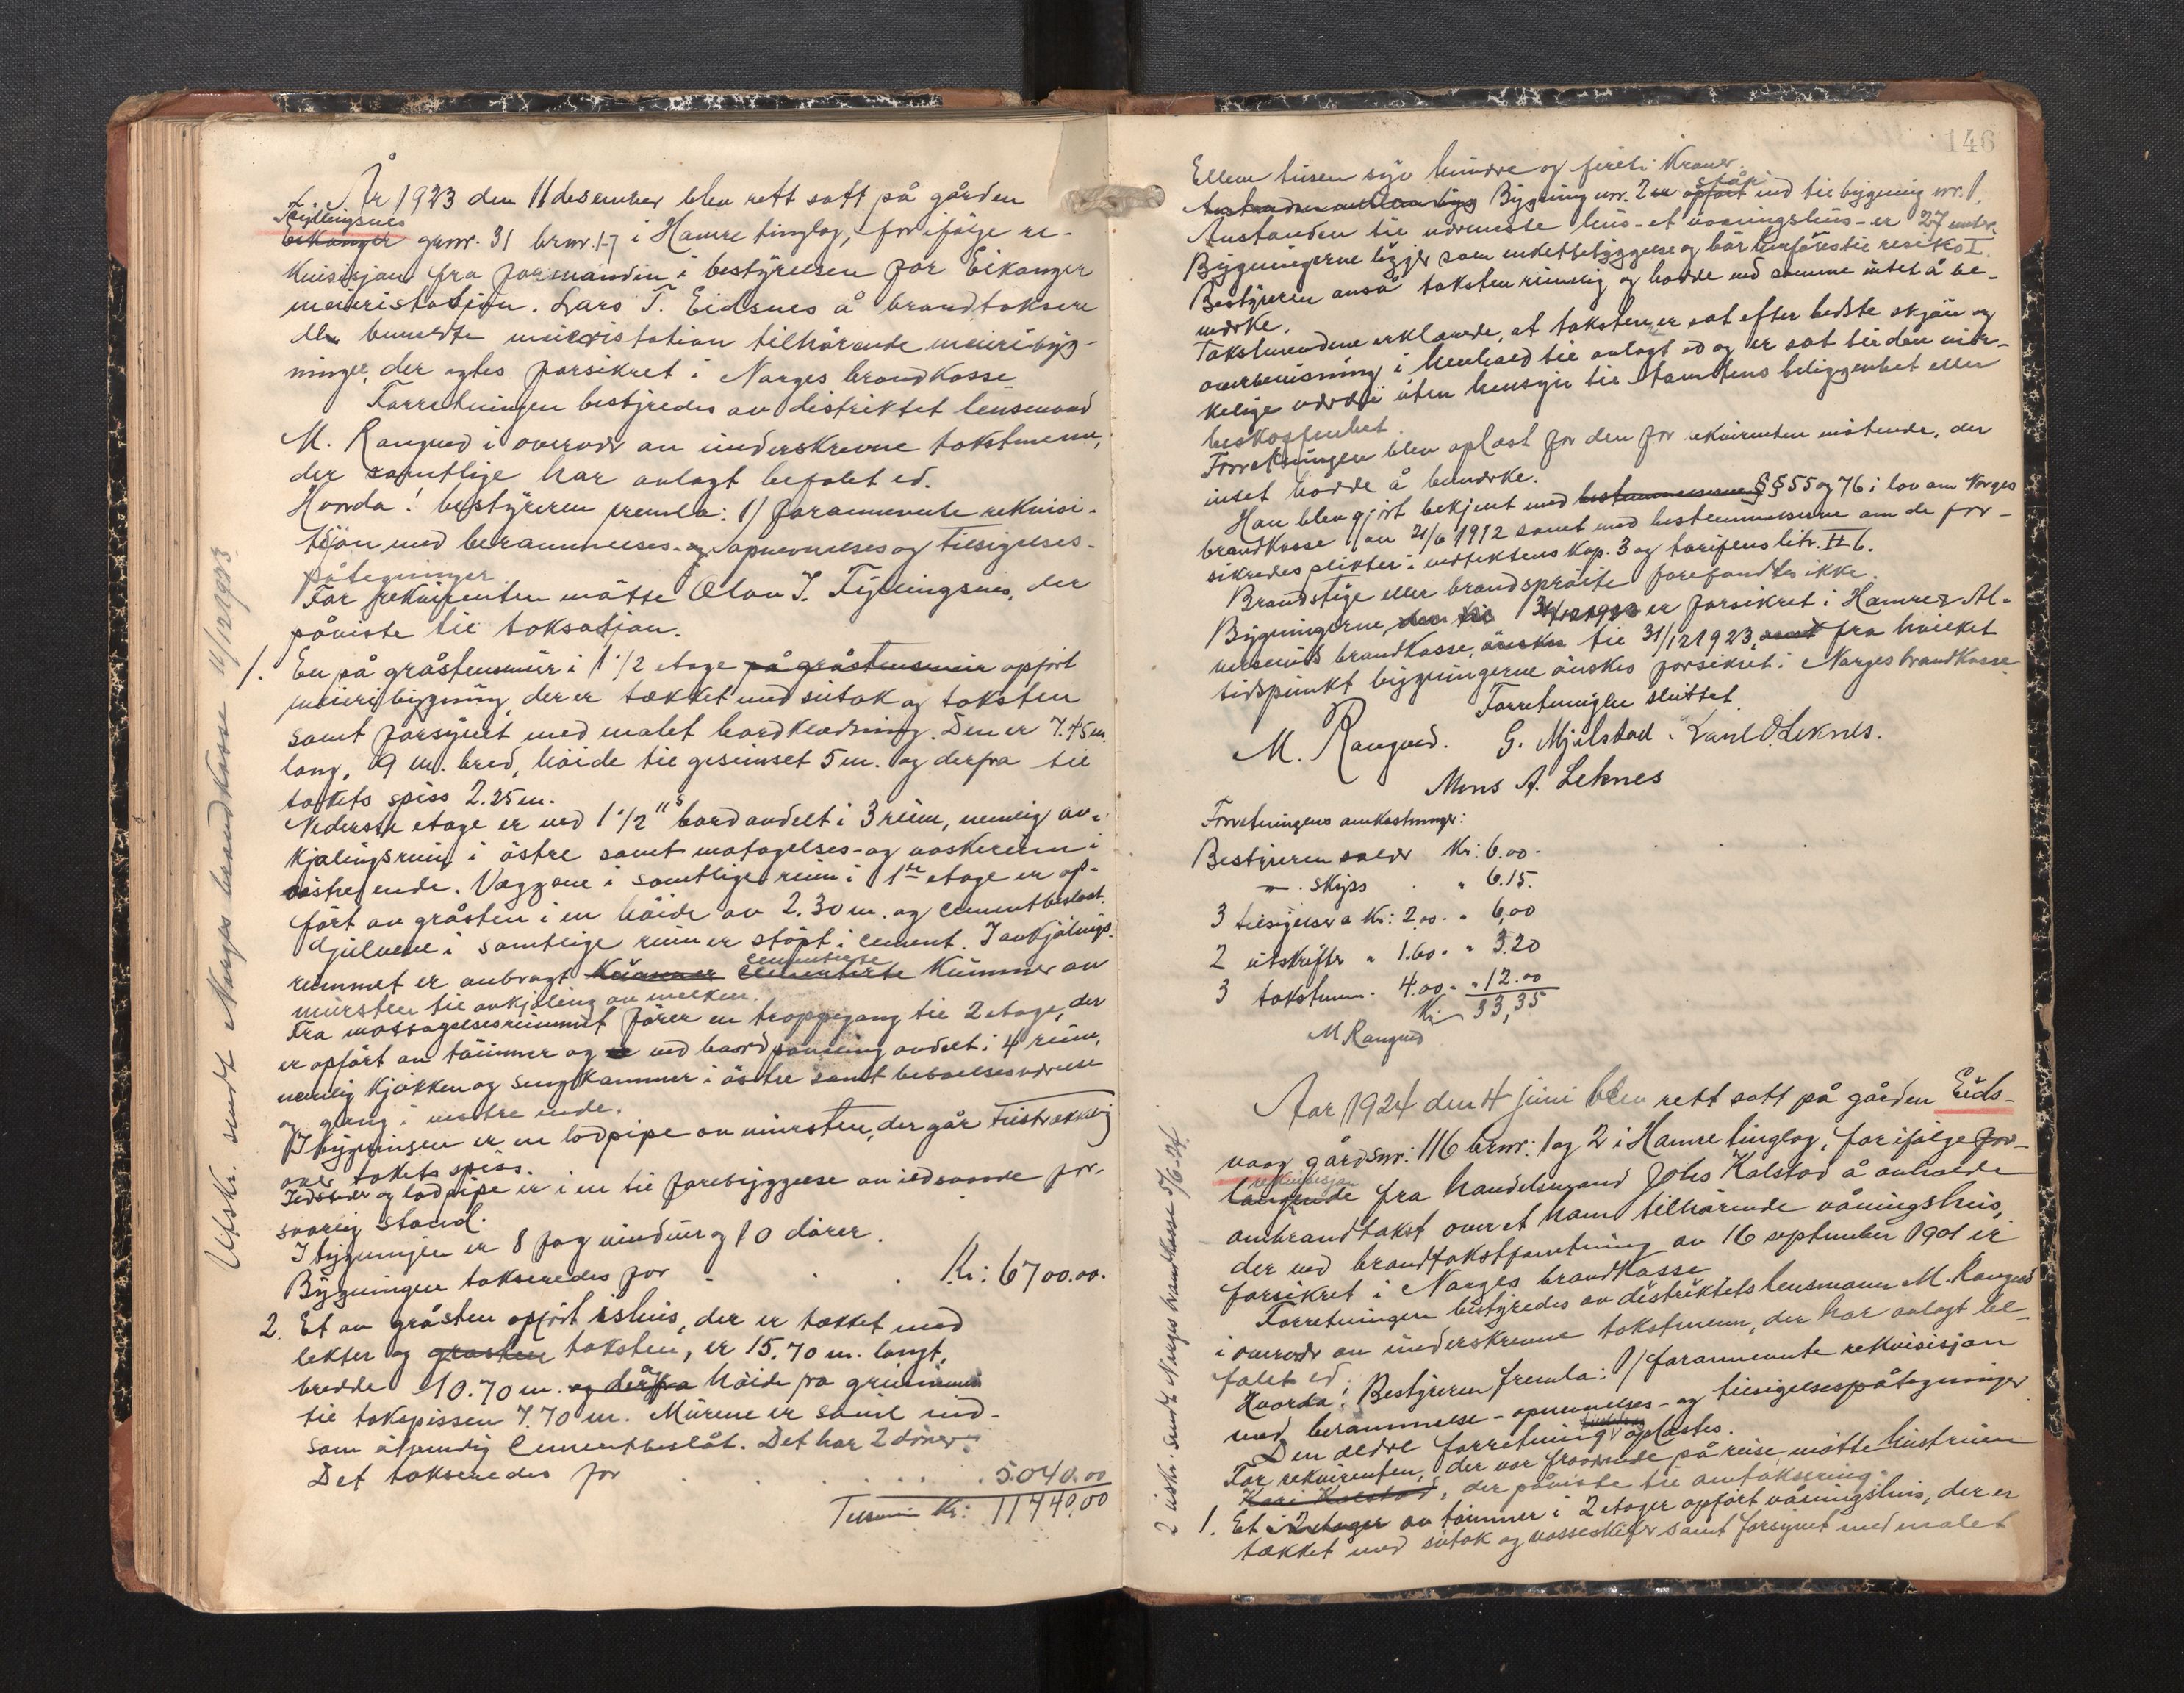 År 1923 den 11 desember blev rett satt på gården
Fyllingsnes
Eikanger gnr. 31 brnr. 1-7 i Hamre tinglag, for ifølge re-
kvisisjon fra formanden i bestyrelsen for Eikanger
meieristation. Lars T. Eidsnes å brandtaksere
den bemeldte meieristation tilhørende meieribyg-
ninger, der agtes forsikret i Norges brandkasse
Forretningen bestyredes av distriktet lensmand
M. Rangued i overvær av underskrevne takstmenn,
der samtlige har avlagt befalet ed.
Hvorda! bestyreren fremla: 1) forannevnte rekvisi-
sjon med berammelses- og opnevnelses og tilsigelses-
påtegninger.
For rekvirenten møtte Olav J. Fyllingsnes, der
påviste til taksasjon.
1. En på gråstensmur i 1 1/2 etage på gråstensmur opført
meieribygning, der er tækket med sutak og taksten
samt forsynet med malet bordklædning. Den er 7.45 m.
lang, 9 m. bred, høide til gesimset 5 m. og derfra til
takets spiss 2.25 m.
Nederste etage er ved 1 1/2" bord avdelt i 3 rum, nemlig av-
kjølingsrum i østre samt motagelses- og vaskerum i
vestre ende. Væggene i samtlige rum i 1ste etage er op-
ført av gråsten i en høide av 2.30 m. og cementbeslåt.
Gulvene i samtlige rum er støpt i cement. I avkjølings-
cementerte
rummet er anbragt Kummer cementerte kummer av
mursten til avkjøling av melken.
Fra mottagelsesrummet fører en trappegang til 2 etage, der
er opført av tømmer og ved bordpaneling avdelt i 4 rum,
nemlig kjøkken og sengkammer i østre samt beboelsesværelse
og gang i vestre ende.
I bygningen er en lodpipe av mursten, der går tilstrækkelig
over takets spiss.
Ildsteder og lodpipe er i en til forebyggelse av ildsvaade for-
svarlig stand.
I bygningen er 8 fag vinduer og 10 dører.
Bygningen takseredes for . . . Kr: 6700.00.
2. Et av gråsten opført ishus, der er tækket med
lekter og gråsten taksten, er 15.70 m. langt,
bredde 10.70 m. og derfra høide fra grunnmuren
til takspissen 7.70 m. Murene er såvel ind-
som utvendig cementbeslåt. Det har 2 dører.
Det takseredes for . . . . . 5040.00
Tilsammen Kr: 11740,00
Utskr. sendt Norges brandkasse 14/12 1923
146
Elleve tusen syv hundre og firti Kroner.
står
Avstanden mellem byg Bygning nr. 2 er opført ind til bygning nr. 1.
Avstanden til nærmeste hus - et våningshus - er 27 meter.
Bygningerne ligger som enkeltbebyggelse og bør henføres til resiko I.
Bestyreren anså taksten rimelig og hadde ved samme intet å be-
merke.
Takstmendene erklærede, at taksten er sat efter bedste skjøn og
overbevisning i henhold til avlagt ed og er sat til den vir-
kelige værdi uten hensyn til tomtens beliggenhet eller
beskaffenhet.
Forretningen blev oplæst for den for rekvirenten møtende, der
intet hadde å bemerke.
Han blev gjort bekjent med bestemmelserne §§ 55 og 76 i lov om Norges
brandkasse av 21/6 1912 samt med bestemmelserne om de for-
sikredes plikter i vedtektens kap. 3 og tarifens litr. II b.
Brandstige eller brandsprøite forefandtes ikke.
Bygningerne den til 31/12 1923 er forsikret i Hamre & Al-
versunds brandkasse, ønskes til 31/12 1923, samt fra hvilket
tidspunkt bygningerne ønskes forsikret i Norges brandkasse
Forretningen sluttet.
M. Rangued. G. Mjelstad. Karl O. Leknes.
Mons A. Leknes
Forretningens omkostninger:
Bestyreren salær Kr: 6.00.
— " — skyss . " 6.15.
3 tilsigelser a Kr: 2.00. " 6,00
2 utskrifter " 1.60. " 3.20
3 takstmenn. 4.00. " 12.00
Kr. 33,35
M Rangued
Aar 1924 den 4 juni blev rett satt på gården Eids-
vaag gårdsnr: 116 brnr: 1 og 2 i Hamre tinglag, for ifølge for-
rekvisisjon
langende fra handelsmand Johs Kalstad å avholde
ombrandtakst over et ham tilhørende våningshus,
der ved brandtakstforretning av 16 september 1901 er
forsikret i Norges brandkasse
Forretningen bestyredes av distriktets lensmann M. Rangued
i overvær av underskrevne takstmenn, der har avlagt be-
falet ed.
Hvorda: Bestyreren fremla: 1) forannevnte rekvisisjon
med berammelse- opnevnelses- og tilsigelsespåtegninger
Den ældre forretning oplæstes.
For rekvirenten, der var fraværende på reise, møtte hustruen
Kari Kalstad, der påviste til omtaksering.
1. Et i 2 etager av tømmer i 2 etager opført våningshus, der er
tækket med sutak og vosseskifer samt forsynet med malet
2 utskr. sendt Norges brandkasse 5/6-24.